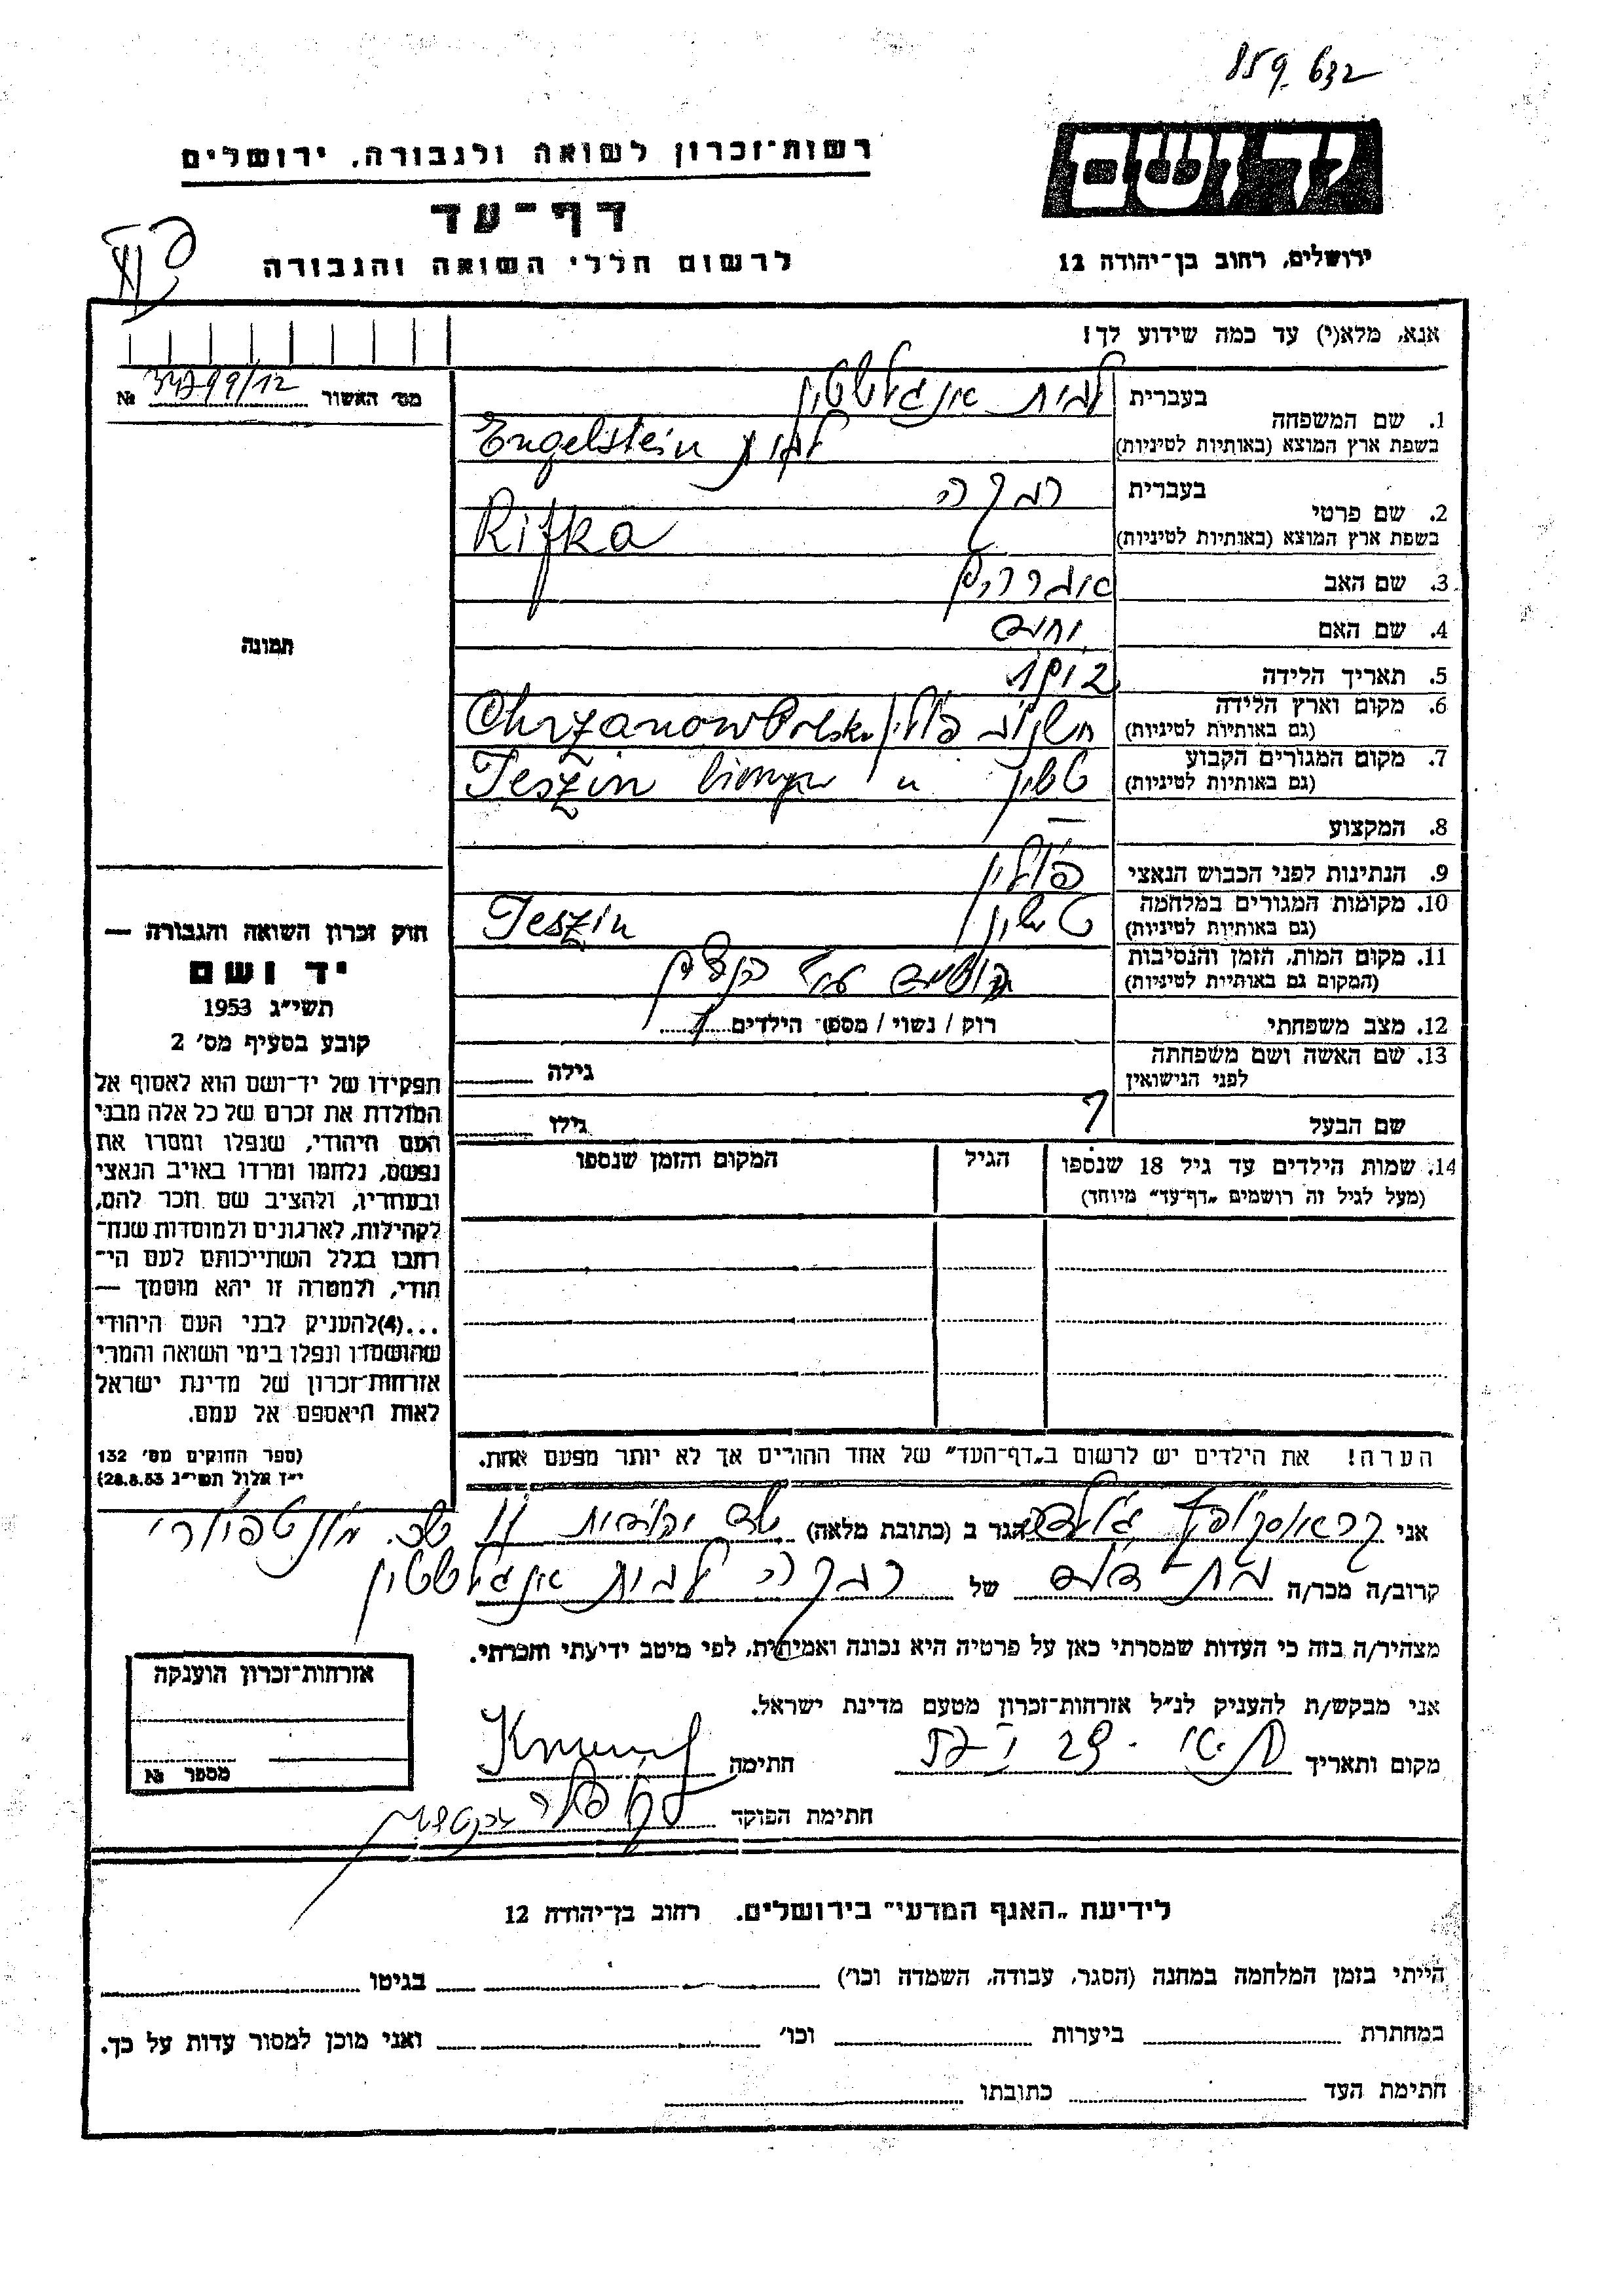 859 632
רשות-זכרון לשואה ולגבורה, ירושלים
יד ושם
דף-עד
לרשום חללי השואה והגבורה
ירושלים, רחוב בן-יהודה 12
אנא, מלא(י) עד כמה שידוע לך!
מס' האשור №
1. שם המשפחה
בעברית לבית אנגלשטיין
בשפת ארץ המוצא (באותיות לטיניות) לבית Engelstein
2. שם פרטי
בעברית רבקה
בשפת ארץ המוצא (באותיות לטיניות) Rifka
3. שם האב אברהם
4. שם האם
5. תאריך הלידה
6. מקום וארץ הלידה
(גם באותיות לטיניות) פולין Chrzanow Polska
7. מקום המגורים הקבוע
(גם באותיות לטיניות) טשין Teszin
8. המקצוע —
9. הנתינות לפני הכבוש הנאצי פולין
10. מקומות המגורים במלחמה
(גם באותיות לטיניות) טשין Teszin
11. מקום המות, הזמן והנסיבות
(המקום גם באותיות לטיניות)
12. מצב משפחתי רוק / נשוי / מספר הילדים ?
13. שם האשה ושם משפחתה
לפני הנישואין גילה
שם הבעל ? גילו
14. שמות הילדים עד גיל 18 שנספו
(מעל לגיל זה רושמים „דף-עד" מיוחד)
הגיל
המקום והזמן שנספו
הערה! את הילדים יש לרשום ב„דף-העד" של אחד ההורים אך לא יותר מפעם אחת.
תמונה
חוק זכרון השואה והגבורה —
יד ושם
תשי"ג 1953
קובע בסעיף מס' 2
תפקידו של יד-ושם הוא לאסוף אל
המולדת את זכרם של כל אלה מבני
העם היהודי, שנפלו ומסרו את
נפשם, נלחמו ומרדו באויב הנאצי
ובעוזריו, ולהציב שם וזכר להם,
לקהילות, לארגונים ולמוסדות שנח-
רבו בגלל השתייכותם לעם הי-
הודי, ולמטרה זו יהא מוסמך —
...(4)להעניק לבני העם היהודי
שהושמדו ונפלו בימי השואה והמרי
אזרחות-זכרון של מדינת ישראל
לאות היאספם אל עמם.
(ספר החוקים מס' 132
י"ז אלול תשי"ג 28.8.53)
אני הגר ב (כתובת מלאה)
קרוב/ה מכר/ה בת דודה של רבקה לבית אנגלשטיין
מצהיר/ה בזה כי העדות שמסרתי כאן על פרטיה היא נכונה ואמיתית, לפי מיטב ידיעתי והכרתי.
אני מבקש/ת להעניק לנ"ל אזרחות-זכרון מטעם מדינת ישראל.
מקום ותאריך חתימה
חתימת הפוקד
אזרחות-זכרון הוענקה
מספר №
לידיעת „האגף המדעי" בירושלים. רחוב בן-יהודה 12
הייתי בזמן המלחמה במחנה (הסגר, עבודה, השמדה וכו') בגיטו
במחתרת ביערות וכו' ואני מוכן למסור עדות על כך.
חתימת העד כתובתו